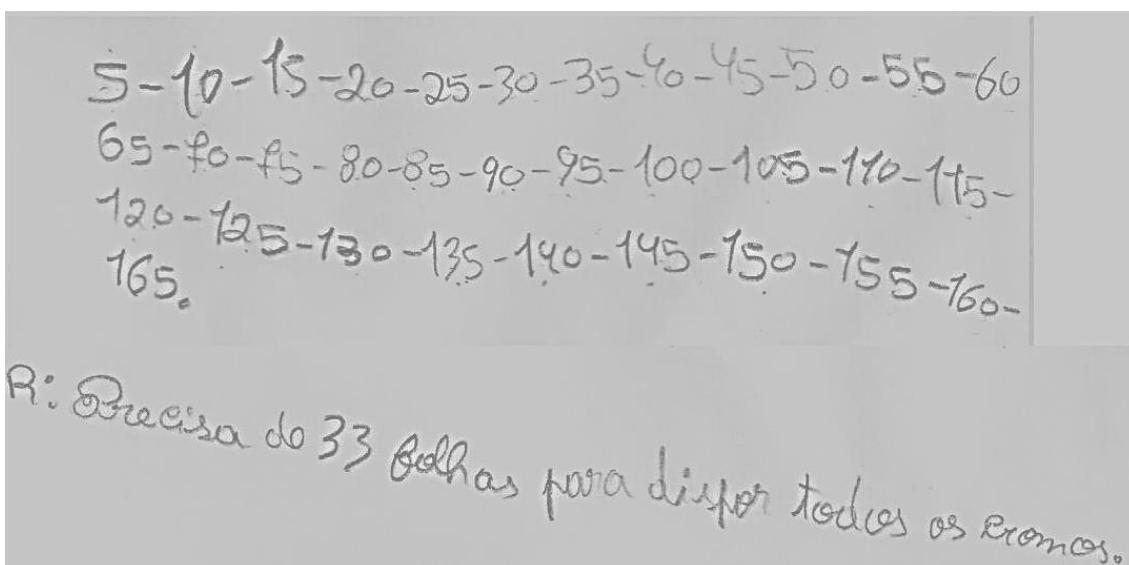 5-10-15-20-25-30-35-40-45-50-55-60
65-70-75-80-85-90-95-100-105-110-115-
120-125-130-135-140-145-150-155-160-
165.
R: Precisa de 33 folhas para dispor todos os cromos.